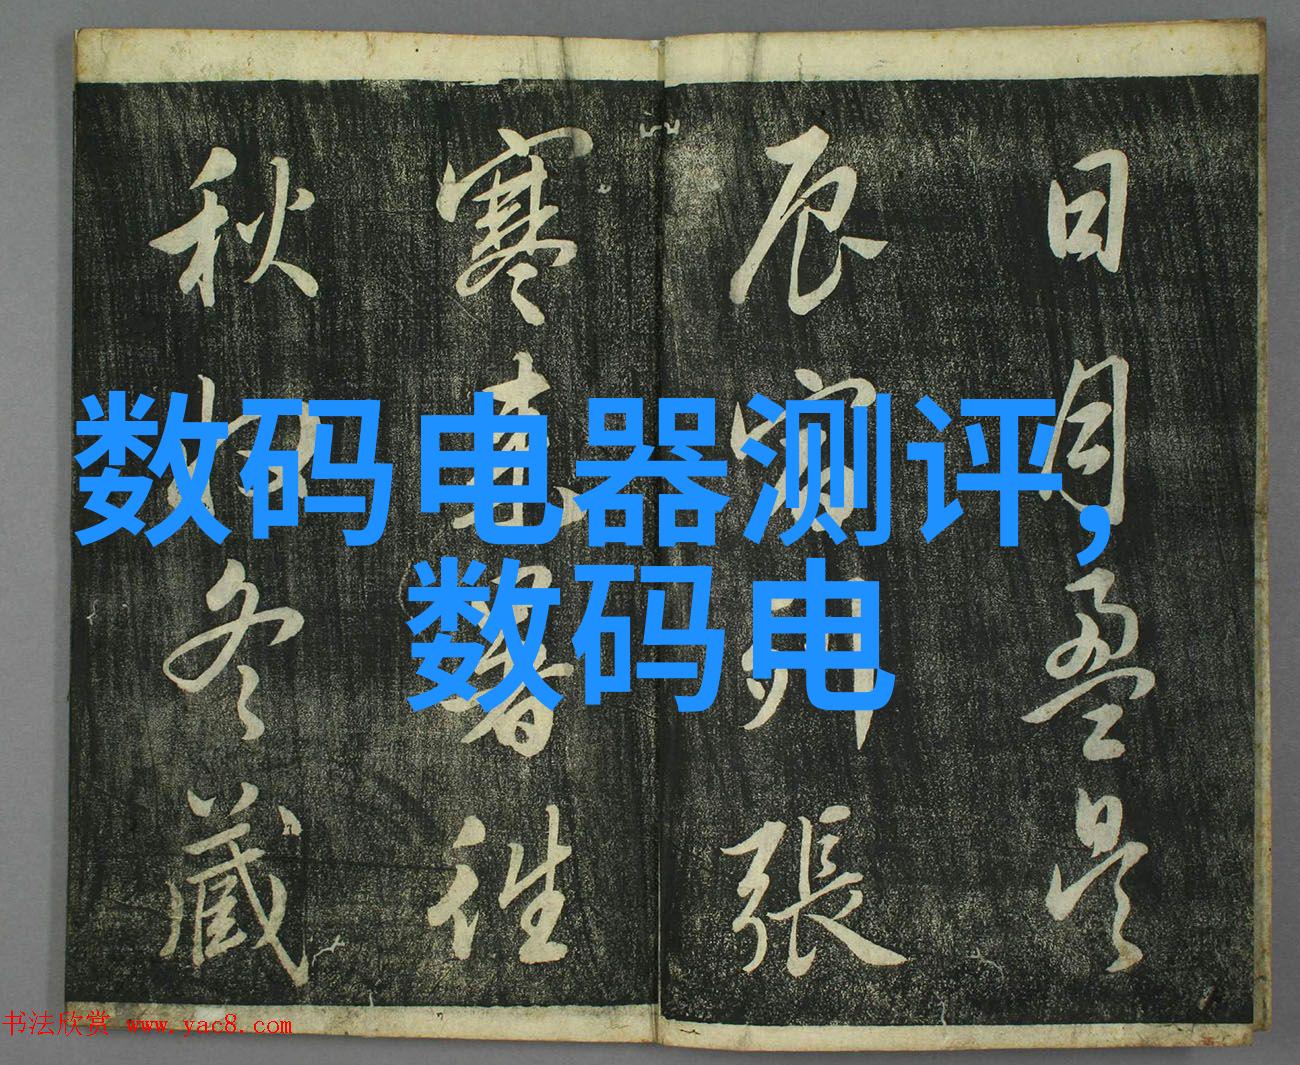 日月盈昃
辰宿列張
寒来暑往
秋收冬藏
数码电器测评,
数码电
书法欣赏 www.yac8.com